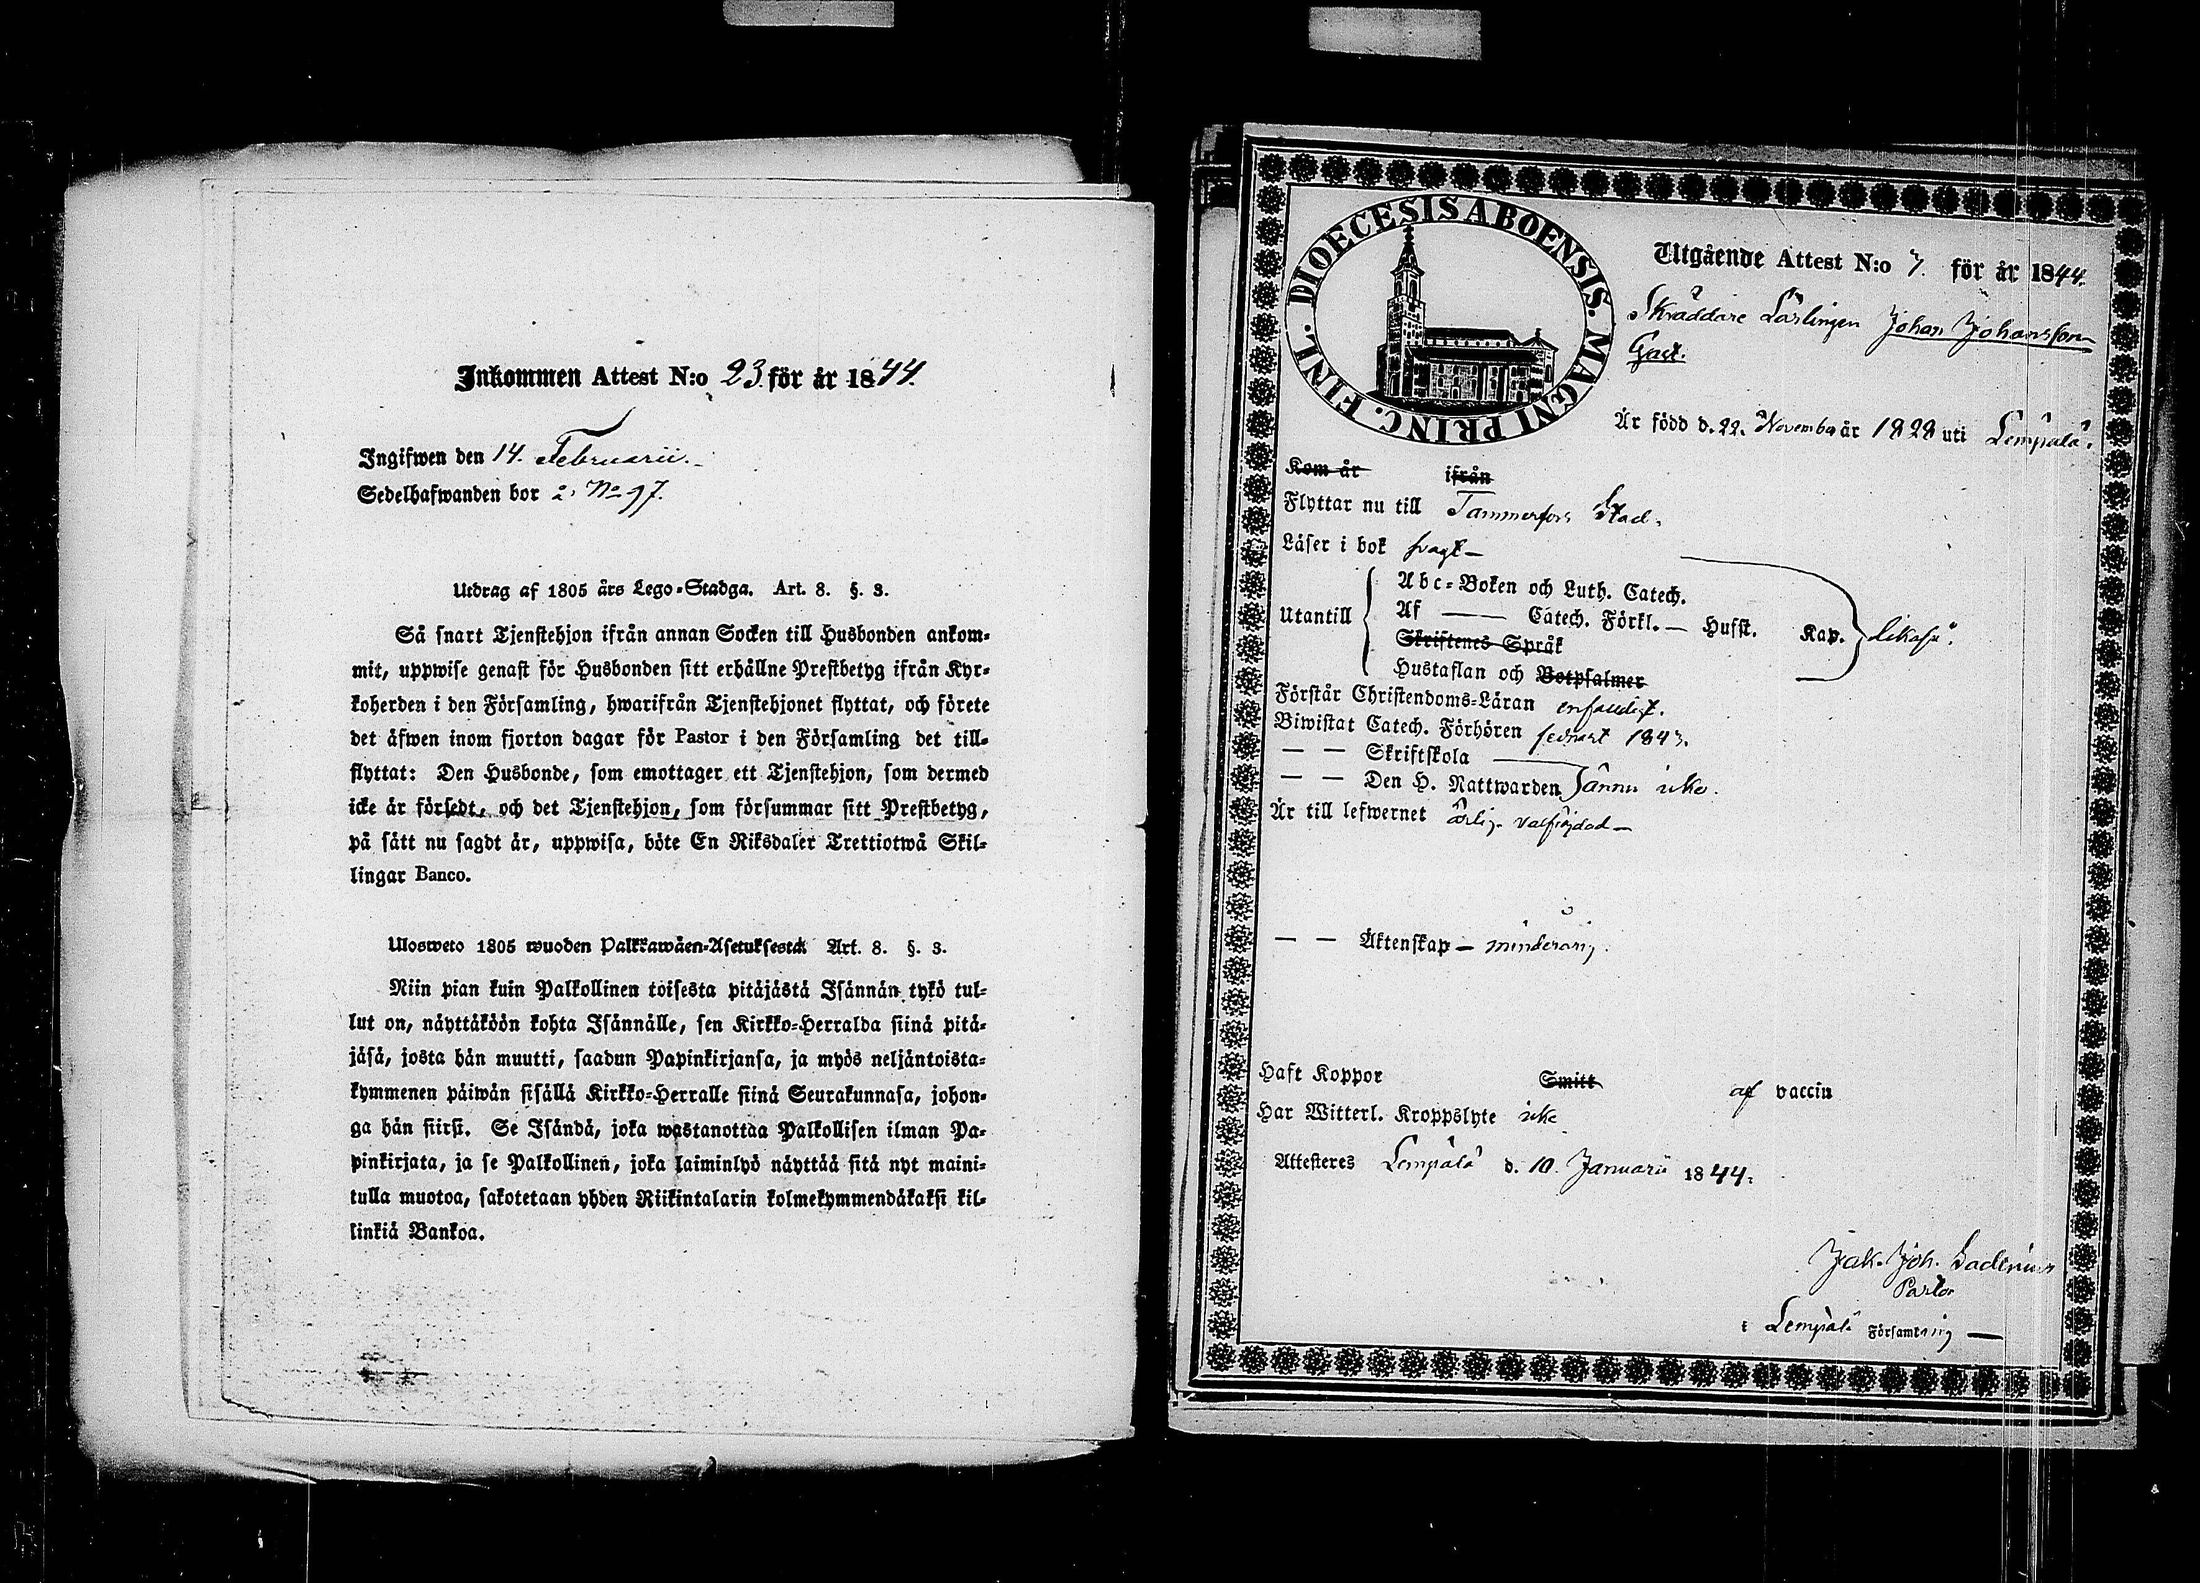 Inkommen Attest N:o 23. för år 1844.
Ingifwen den 14. Februarii.
Sedelhafwanden bor i No 97.
Utdrag af 1805 års Lego-Stadga. Art. 8. §. 3.
Så snart Tjenstehjon ifrån annan Socken till Husbonden ankom-
mit, uppwise genast för Husbonden sitt erhållne Prestbetyg ifrån Kyr-
koherden i den Församling, hwarifrån Tjenstehjonet flyttat, och förete
det äfwen inom fjorton dagar för Pastor i den Församling det till-
flyttat: Den Husbonde, som emottager ett Tjenstehjon, som dermed
icke är försedt, och det Tjenstehjon, som försummar sitt Prestbetyg,
på sätt nu sagdt är, uppwisa, böte En Riksdaler Trettiotwå Skil-
lingar Banco.
Ulosweto 1805 wuoden Palkkawäen-Asetuksesta. Art. 8. §. 3.
Niin pian kuin Palkollinen toisesta pitäjästä Isännän tykö tul-
lut on, näyttäköön kohta Isännälle, sen Kirkko-Herralda siinä pitä-
jäsä, josta hän muutti, saadun Papinkirjansa, ja myös neljäntoista-
kymmenen päiwän sisällä Kirkko-Herralle siinä Seurakunnasa, johon-
ga hän siirsi. Se Isändä, joka wastanottaa Palkollisen ilman Pa-
pinkirjata, ja se Palkollinen, joka laiminlyö näyttää sitä nyt maini-
tulla muotoa, sakotetaan yhden Riikintalarin kolmekymmendäkaksi kil-
linkiä Bankoa.
DIOECESIS ABOENSIS. MAGNI PRINC. FINL.
Utgående Attest N:o 7. för år 1844.
Skräddare Lärlingen Johan Johansson
Är född d. 22. November år 1828 uti Lempälä.
Kom år ifrån
Flyttar nu till Tammerfors Stad.
Läser i bok svagt
Abc-Boken och Luth. Catech.
Utantill Af Catech. Förkl. Husst. Kap. likaså.
Skriftenes Språk
Hustaflan och Botpsalmer
Förstår Christendoms-Läran enfaldigt.
Biwistat Catech. Förhören sednast 1843.
— — Skriftskola
— — Den H. Nattwarden ännu icke.
Är till lefwernet ärlig. välfräjdad
— — Äktenskap minderårig.
Haft Koppor Smitt af vaccin
Har Witterl. Kroppslyte icke
Attesteres Lempälä d. 10. Januarii 1844.
Jak. Joh.
Pastor
i Lempälä Församling